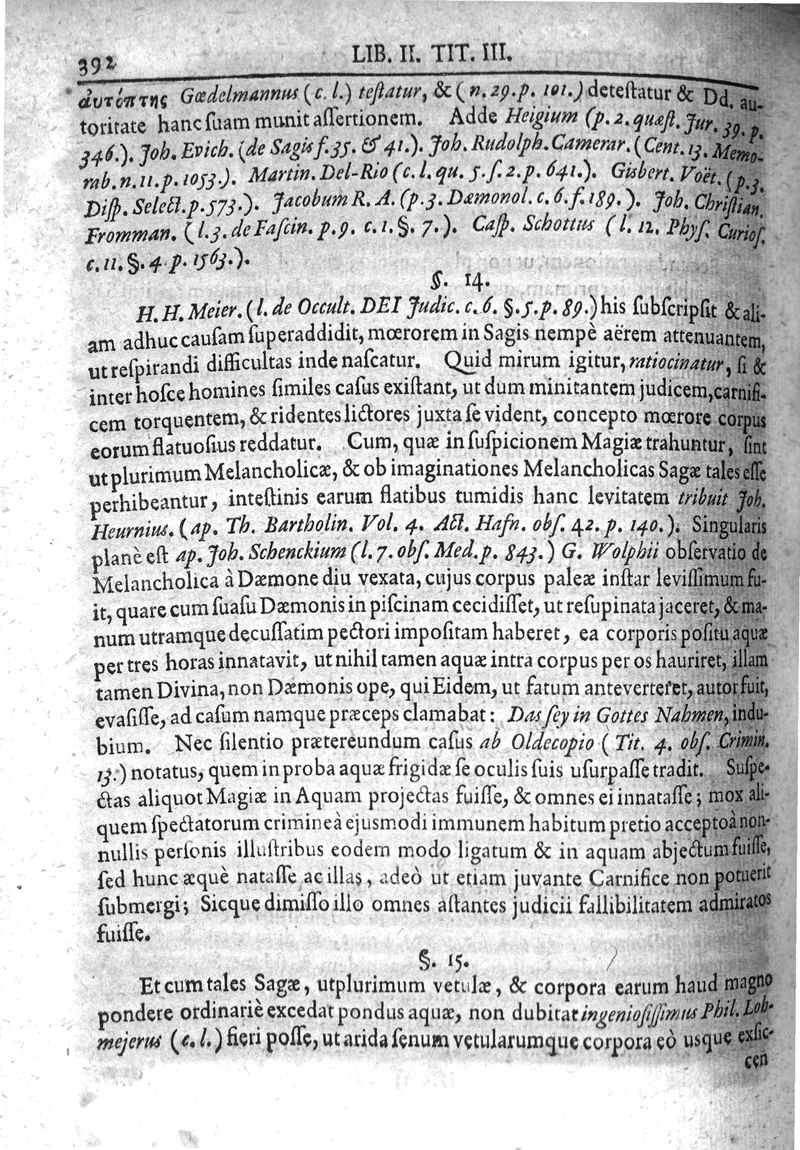 392 LIB. II. TIT. III.
αυτόπτης Gœdelmannus (c. l.) teſtatur, & (n. 29. p. 101.) deteſtatur & Dd. au-
toritate hanc ſuam munit aſſertionem. Adde Heigium (p. 2. quæſt. Jur. 39. p.
346.). Joh. Evich. (de Sagis f. 35. & 41.). Joh. Rudolph. Camerar. (Cent. 13. Memo-
rab. n. 11. p. 1053.). Martin. Del-Rio (c. l. qu. 5. ſ. 2. p. 641.). Gisbert. Voët. (p. 3.
Diſp. Select. p. 573.). Jacobum R. A. (p. 3. Dæmonol. c. 6. f. 189.). Joh. Chriſtian.
Fromman. (l. 3. de Faſcin. p. 9. c. 1. §. 7.). Caſp. Schottus (l. 12. Phyſ. Curioſ.
c. 11. §. 4. p. 1563.).
§. 14.
H. H. Meier. (l. de Occult. DEI Judic. c. 6. §. 5. p. 89.) his ſubſcripſit & ali-
am adhuc cauſam ſuperaddidit, mœrorem in Sagis nempè aërem attenuantem,
ut reſpirandi difficultas inde naſcatur. Quid mirum igitur, ratiocinatur, ſi &
inter hoſce homines ſimiles caſus exiſtant, ut dum minitantem judicem, carnifi-
cem torquentem, & ridentes lictores juxta ſe vident, concepto mœrore corpus
eorum flatuoſius reddatur. Cum, quæ in ſuſpicionem Magiæ trahuntur, ſint
ut plurimum Melancholicæ, & ob imaginationes Melancholicas Sagæ tales eſſe
perhibeantur, inteſtinis earum flatibus tumidis hanc levitatem tribuit Joh.
Heurnius. (ap. Th. Bartholin. Vol. 4. Act. Hafn. obſ. 42. p. 140.). Singularis
planè eſt ap. Joh. Schenckium (l. 7. obſ. Med. p. 843.) G. Wolphii obſervatio de
Melancholica à Dæmone diu vexata, cujus corpus paleæ inſtar leviſſimum fu-
it, quare cum ſuaſu Dæmonis in piſcinam cecidiſſet, ut reſupinata jaceret, & ma-
num utramque decuſſatim pectori impoſitam haberet, ea corporis poſitu aquæ
per tres horas innatavit, ut nihil tamen aquæ intra corpus per os hauriret, illam
tamen Divina, non Dæmonis ope, qui Eidem, ut fatum anteverteret, autor fuit,
evaſiſſe, ad caſum namque præceps clamabat: Das ſey in Gottes Nahmen, indu-
bium. Nec ſilentio prætereundum caſus ab Oldecopio (Tit. 4. obſ. Crimin.
13.) notatus, quem in proba aquæ frigidæ ſe oculis ſuis uſurpaſſe tradit. Suſpe-
ctas aliquot Magiæ in Aquam projectas fuiſſe, & omnes ei innataſſe; mox ali-
quem ſpectatorum crimine à ejusmodi immunem habitum pretio accepto à non-
nullis perſonis illuſtribus eodem modo ligatum & in aquam abjectum fuiſſe,
ſed hunc æquè nataſſe ac illas, adeò ut etiam juvante Carnifice non potuerit
ſubmergi; Sicque dimiſſo illo omnes aſtantes judicii fallibilitatem admiratos
fuiſſe.
§. 15.
Et cum tales Sagæ, utplurimum vetulæ, & corpora earum haud magno
pondere ordinariè excedat pondus aquæ, non dubitat ingenioſiſſimus Phil. Loh-
mejerus (c. l.) fieri poſſe, ut arida ſenum vetularumque corpora eò usque exſic-
cen